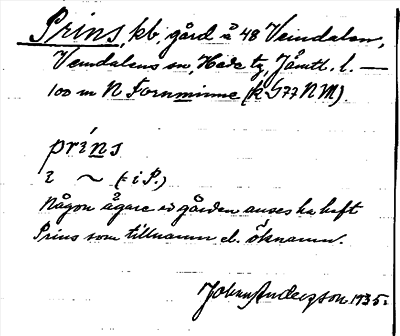 Prins, kb, gård å 48 Vemdalen,
Vemdalens sn, Hede tg, Jämtl. l. —
100 m N Fornminne (k 577 NM).
prins
i ~ (- i P.)
Någon ägare av gården anses ha haft
Prins som tillnamn el. öknamn.
Johan Anderzson 1935.